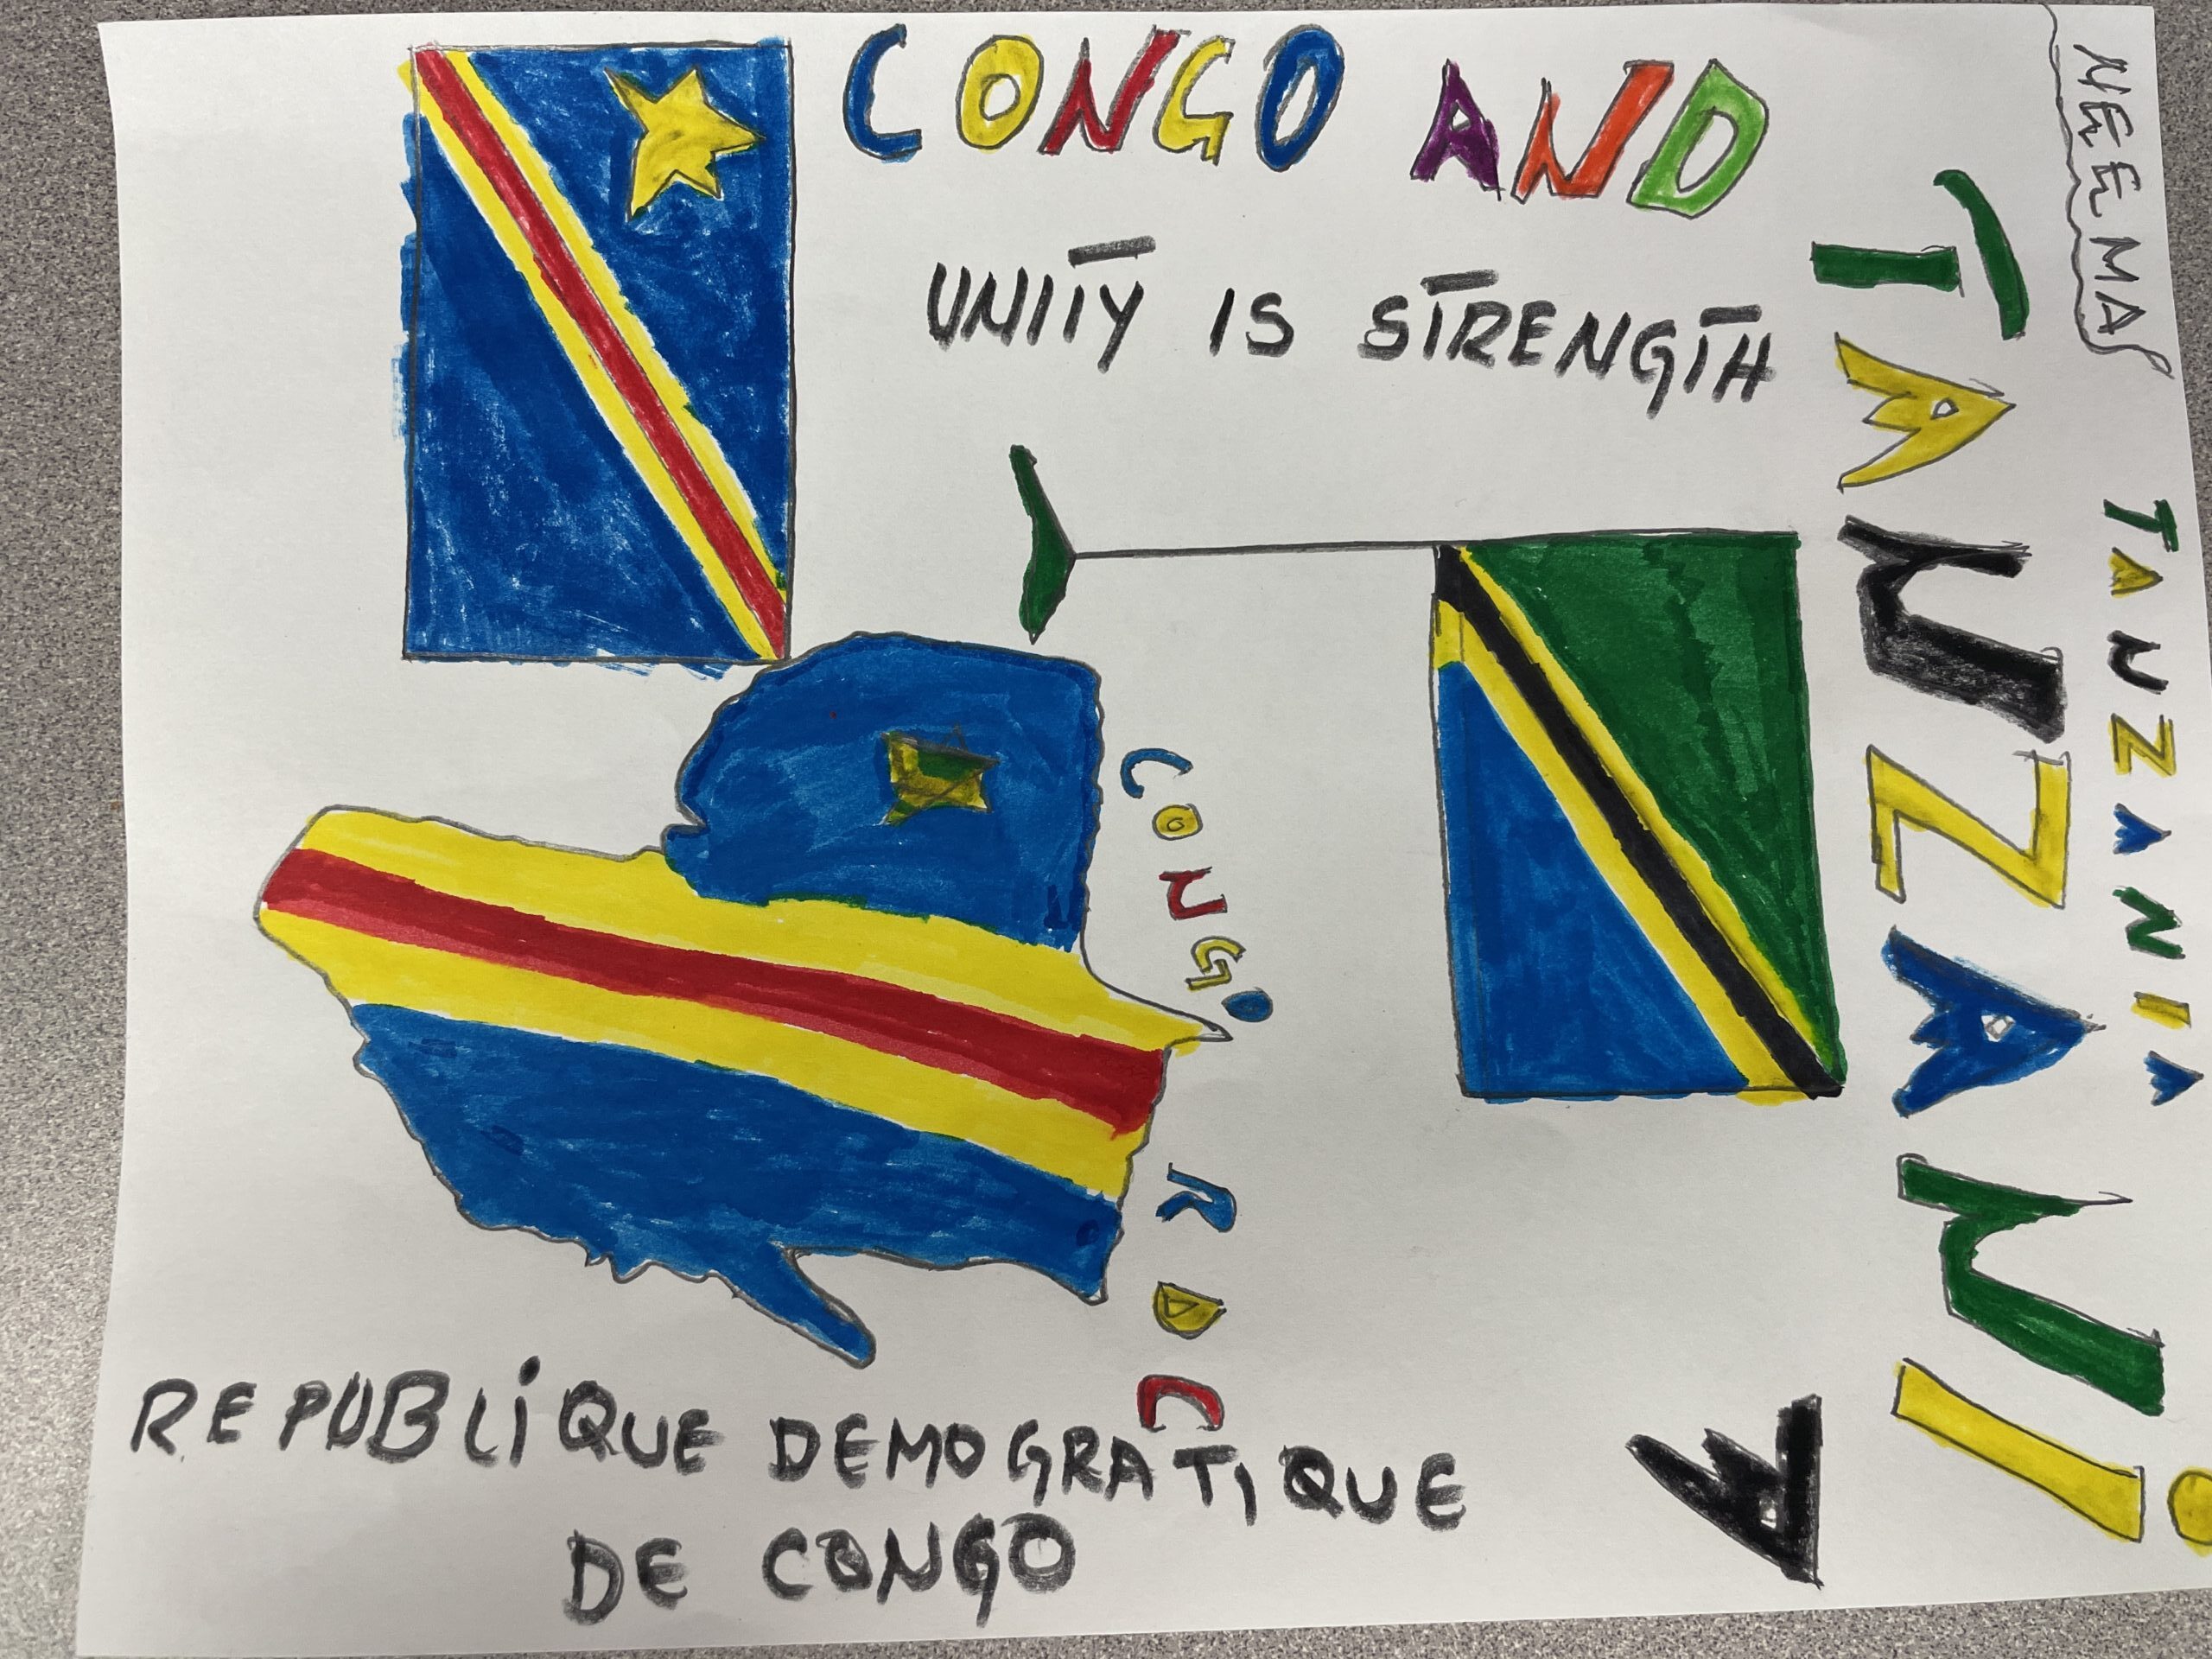 CONGO AND
TANZANiA
UNITY IS STRENGTH
NEEMA
TANZANIA
CONGO
RDC
REPUBLiQUE DEMOGRATIQUE
DE CONGO